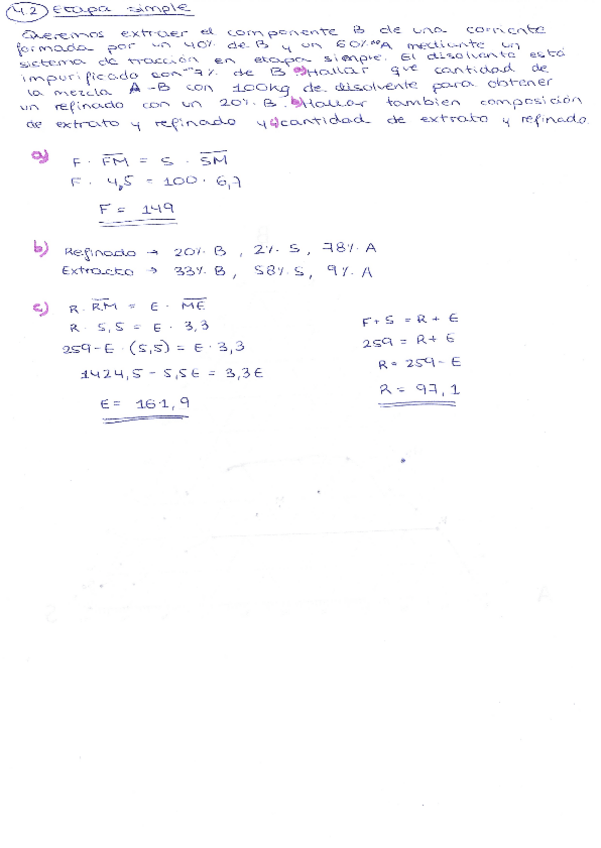 4.2 Etapa simple
Queremos extraer el componente B de una corriente
formada por un 40% de B y un 60% A mediante un
sistema de tracción en etapa simple. El disolvente está
impurificado con 7% de B a) Hallar que cantidad de
la mezcla A-B con 100kg de disolvente para obtener
un refinado con un 20% B. b) Hallar tambien composición
de extrato y refinado y c) cantidad de extrato y refinado
a) F · FM = S · SM
F · 4,5 = 100 · 6,7
F = 149
b) Refinado → 20% B, 2% S, 78% A
Extracto → 33% B, 58% S, 9% A
c) R · RM = E · ME
R · 5,5 = E · 3,3
259 - E · (5,5) = E · 3,3
1424,5 - 5,5E = 3,3E
E = 161,9
F + S = R + E
259 = R + E
R = 259 - E
R = 97,1